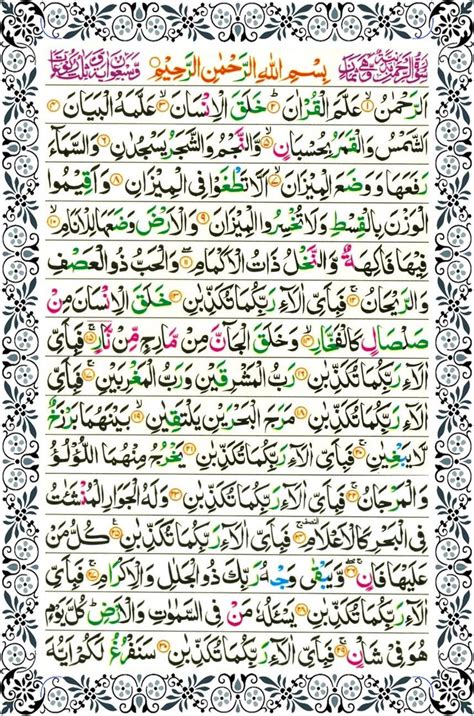 بِسْمِ اللهِ الرَّحْمٰنِ الرَّحِيْمِ
اَلرَّحْمٰنُ ۙ﴿۱﴾ عَلَّمَ الْقُرْاٰنَ ؕ﴿۲﴾ خَلَقَ الْاِنْسَانَ ۙ﴿۳﴾ عَلَّمَهُ الْبَيَانَ ﴿۴﴾
اَلشَّمْسُ وَالْقَمَرُ بِحُسْبَانٍ ﴿۵﴾ وَّالنَّجْمُ وَالشَّجَرُ يَسْجُدٰنِ ﴿۶﴾ وَالسَّمَآءَ
رَفَعَهَا وَوَضَعَ الْمِيْزَانَ ۙ﴿۷﴾ اَلَّا تَطْغَوْا فِي الْمِيْزَانِ ﴿۸﴾ وَاَقِيْمُوا
الْوَزْنَ بِالْقِسْطِ وَلَا تُخْسِرُوا الْمِيْزَانَ ﴿۹﴾ وَالْاَرْضَ وَضَعَهَا لِلْاَنَامِ ۙ﴿۱۰﴾
فِيْهَا فَاكِهَةٌ وَّالنَّخْلُ ذَاتُ الْاَكْمَامِ ﴿۱۱﴾ وَالْحَبُّ ذُو الْعَصْفِ
وَالرَّيْحَانُ ﴿۱۲﴾ فَبِاَيِّ اٰلَآءِ رَبِّكُمَا تُكَذِّبٰنِ ﴿۱۳﴾ خَلَقَ الْاِنْسَانَ مِنْ
صَلْصَالٍ كَالْفَخَّارِ ۙ﴿۱۴﴾ وَخَلَقَ الْجَآنَّ مِنْ مَّارِجٍ مِّنْ نَّارٍ ﴿۱۵﴾ فَبِاَيِّ
اٰلَآءِ رَبِّكُمَا تُكَذِّبٰنِ ﴿۱۶﴾ رَبُّ الْمَشْرِقَيْنِ وَرَبُّ الْمَغْرِبَيْنِ ﴿۱۷﴾ فَبِاَيِّ
اٰلَآءِ رَبِّكُمَا تُكَذِّبٰنِ ﴿۱۸﴾ مَرَجَ الْبَحْرَيْنِ يَلْتَقِيٰنِ ۙ﴿۱۹﴾ بَيْنَهُمَا بَرْزَخٌ
لَّا يَبْغِيٰنِ ﴿۲۰﴾ فَبِاَيِّ اٰلَآءِ رَبِّكُمَا تُكَذِّبٰنِ ﴿۲۱﴾ يَخْرُجُ مِنْهُمَا اللُّؤْلُؤُ
وَالْمَرْجَانُ ﴿۲۲﴾ فَبِاَيِّ اٰلَآءِ رَبِّكُمَا تُكَذِّبٰنِ ﴿۲۳﴾ وَلَهُ الْجَوَارِ الْمُنْشَئٰتُ
فِي الْبَحْرِ كَالْاَعْلَامِ ﴿۲۴﴾ فَبِاَيِّ اٰلَآءِ رَبِّكُمَا تُكَذِّبٰنِ ﴿۲۵﴾ كُلُّ مَنْ
عَلَيْهَا فَانٍ ﴿۲۶﴾ وَّيَبْقٰى وَجْهُ رَبِّكَ ذُو الْجَلٰلِ وَالْاِكْرَامِ ﴿۲۷﴾ فَبِاَيِّ
اٰلَآءِ رَبِّكُمَا تُكَذِّبٰنِ ﴿۲۸﴾ يَسْئَلُهٗ مَنْ فِي السَّمٰوٰتِ وَالْاَرْضِ ؕ كُلَّ يَوْمٍ
هُوَ فِيْ شَاْنٍ ﴿۲۹﴾ فَبِاَيِّ اٰلَآءِ رَبِّكُمَا تُكَذِّبٰنِ ﴿۳۰﴾ سَنَفْرُغُ لَكُمْ اَيُّهَ